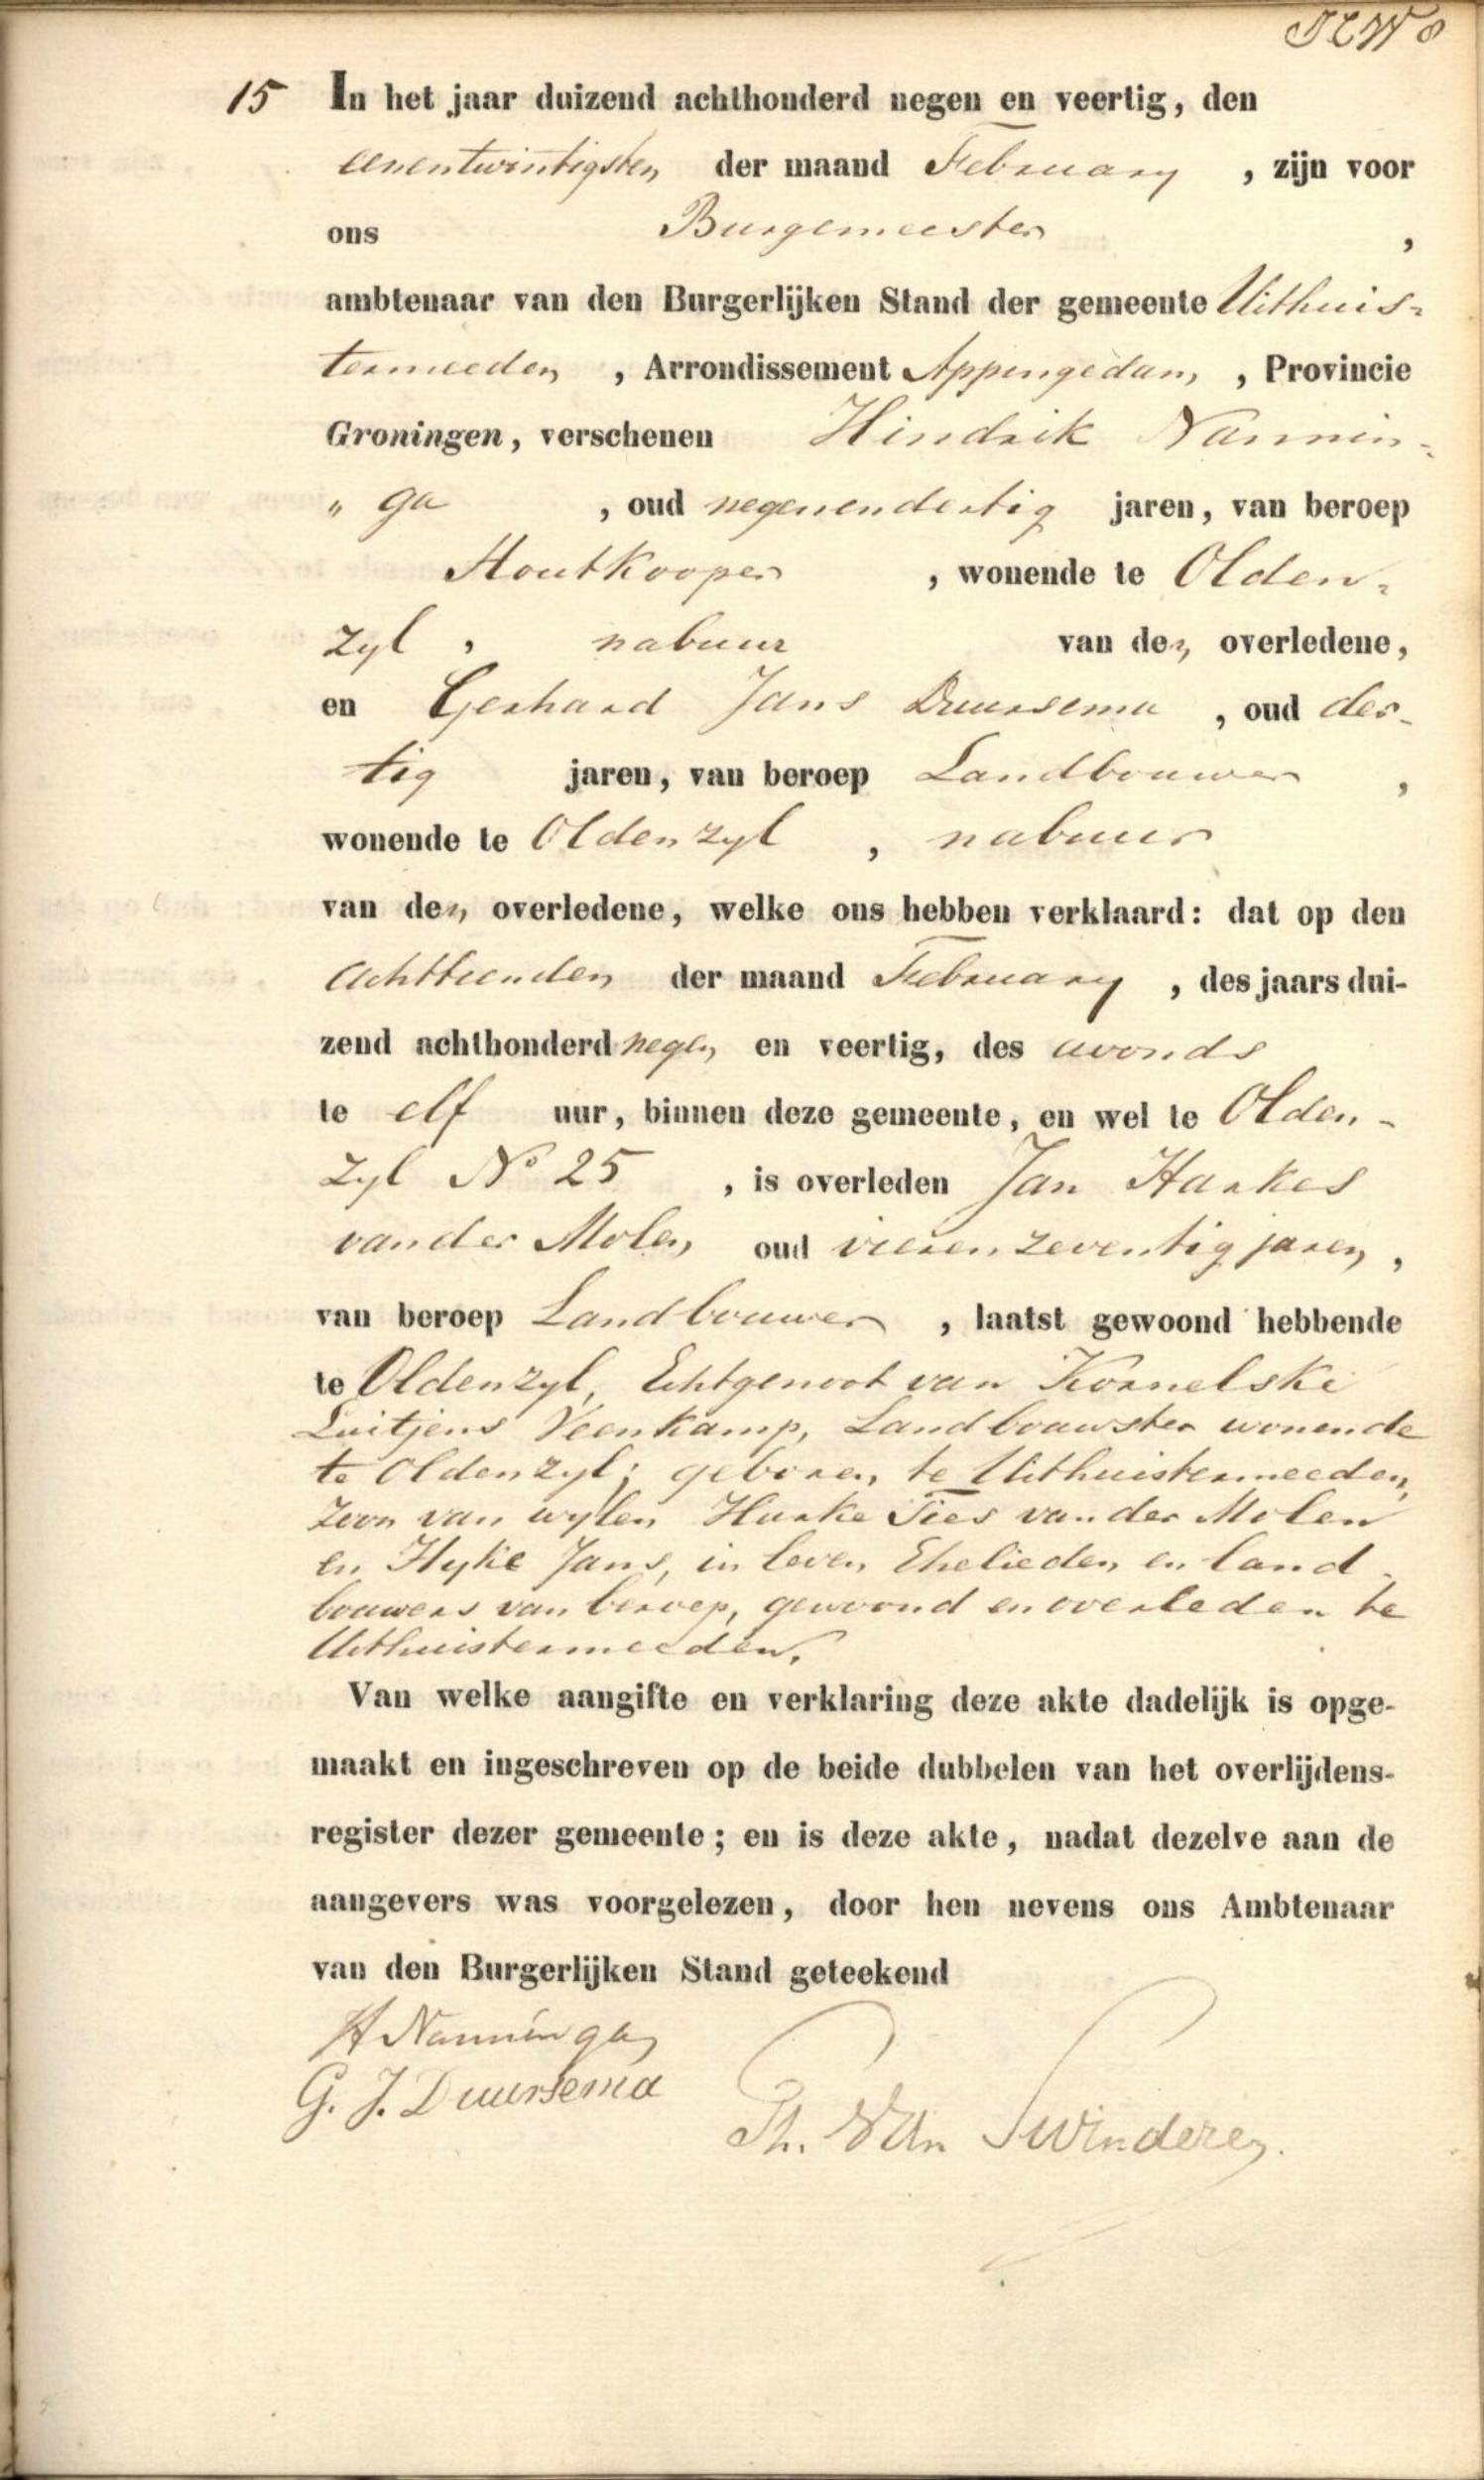 15 In het jaar duizend achthonderd negen en veertig, den
eenentwintigsten der maand February, zijn voor
ons Burgemeester,
ambtenaar van den Burgerlijken Stand der gemeente Uithuis-
termeeden, Arrondissement Appingedam, Provincie
Groningen, verschenen Hindrik Nannin-
" ga, oud negenendertig jaren, van beroep
Houtkooper, wonende te Olden-
zyl, nabuur van den overledene,
en Gerhard Jans Duursema, oud der-
tig jaren, van beroep Landbouwer,
wonende te Oldenzyl, nabuur
van den overledene, welke ons hebben verklaard: dat op den
achttienden der maand February, des jaars dui-
zend achthonderd negen en veertig, des avonds
te elf uur, binnen deze gemeente, en wel te Olden-
zyl No 25, is overleden Jan Harkes
van der Molen oud vierenzeventig jaren,
van beroep Landbouwer, laatst gewoond hebbende
te Oldenzyl, Echtgenoot van Kornelske
Luitjens Veenkamp, Landbouwster wonende
te Oldenzyl; geboren te Uithuistermeeden,
zoon van wylen Harke Ties van der Molen
en Hyke Jans, in leven Ehelieden en land-
bouwers van beroep, gewoond en overleden te
Uithuistermeeden.
Van welke aangifte en verklaring deze akte dadelijk is opge-
maakt en ingeschreven op de beide dubbelen van het overlijdens-
register dezer gemeente; en is deze akte, nadat dezelve aan de
aangevers was voorgelezen, door hen nevens ons Ambtenaar
van den Burgerlijken Stand geteekend
H Nanninga
G. J. Duursema
Th. Van Swinderen.